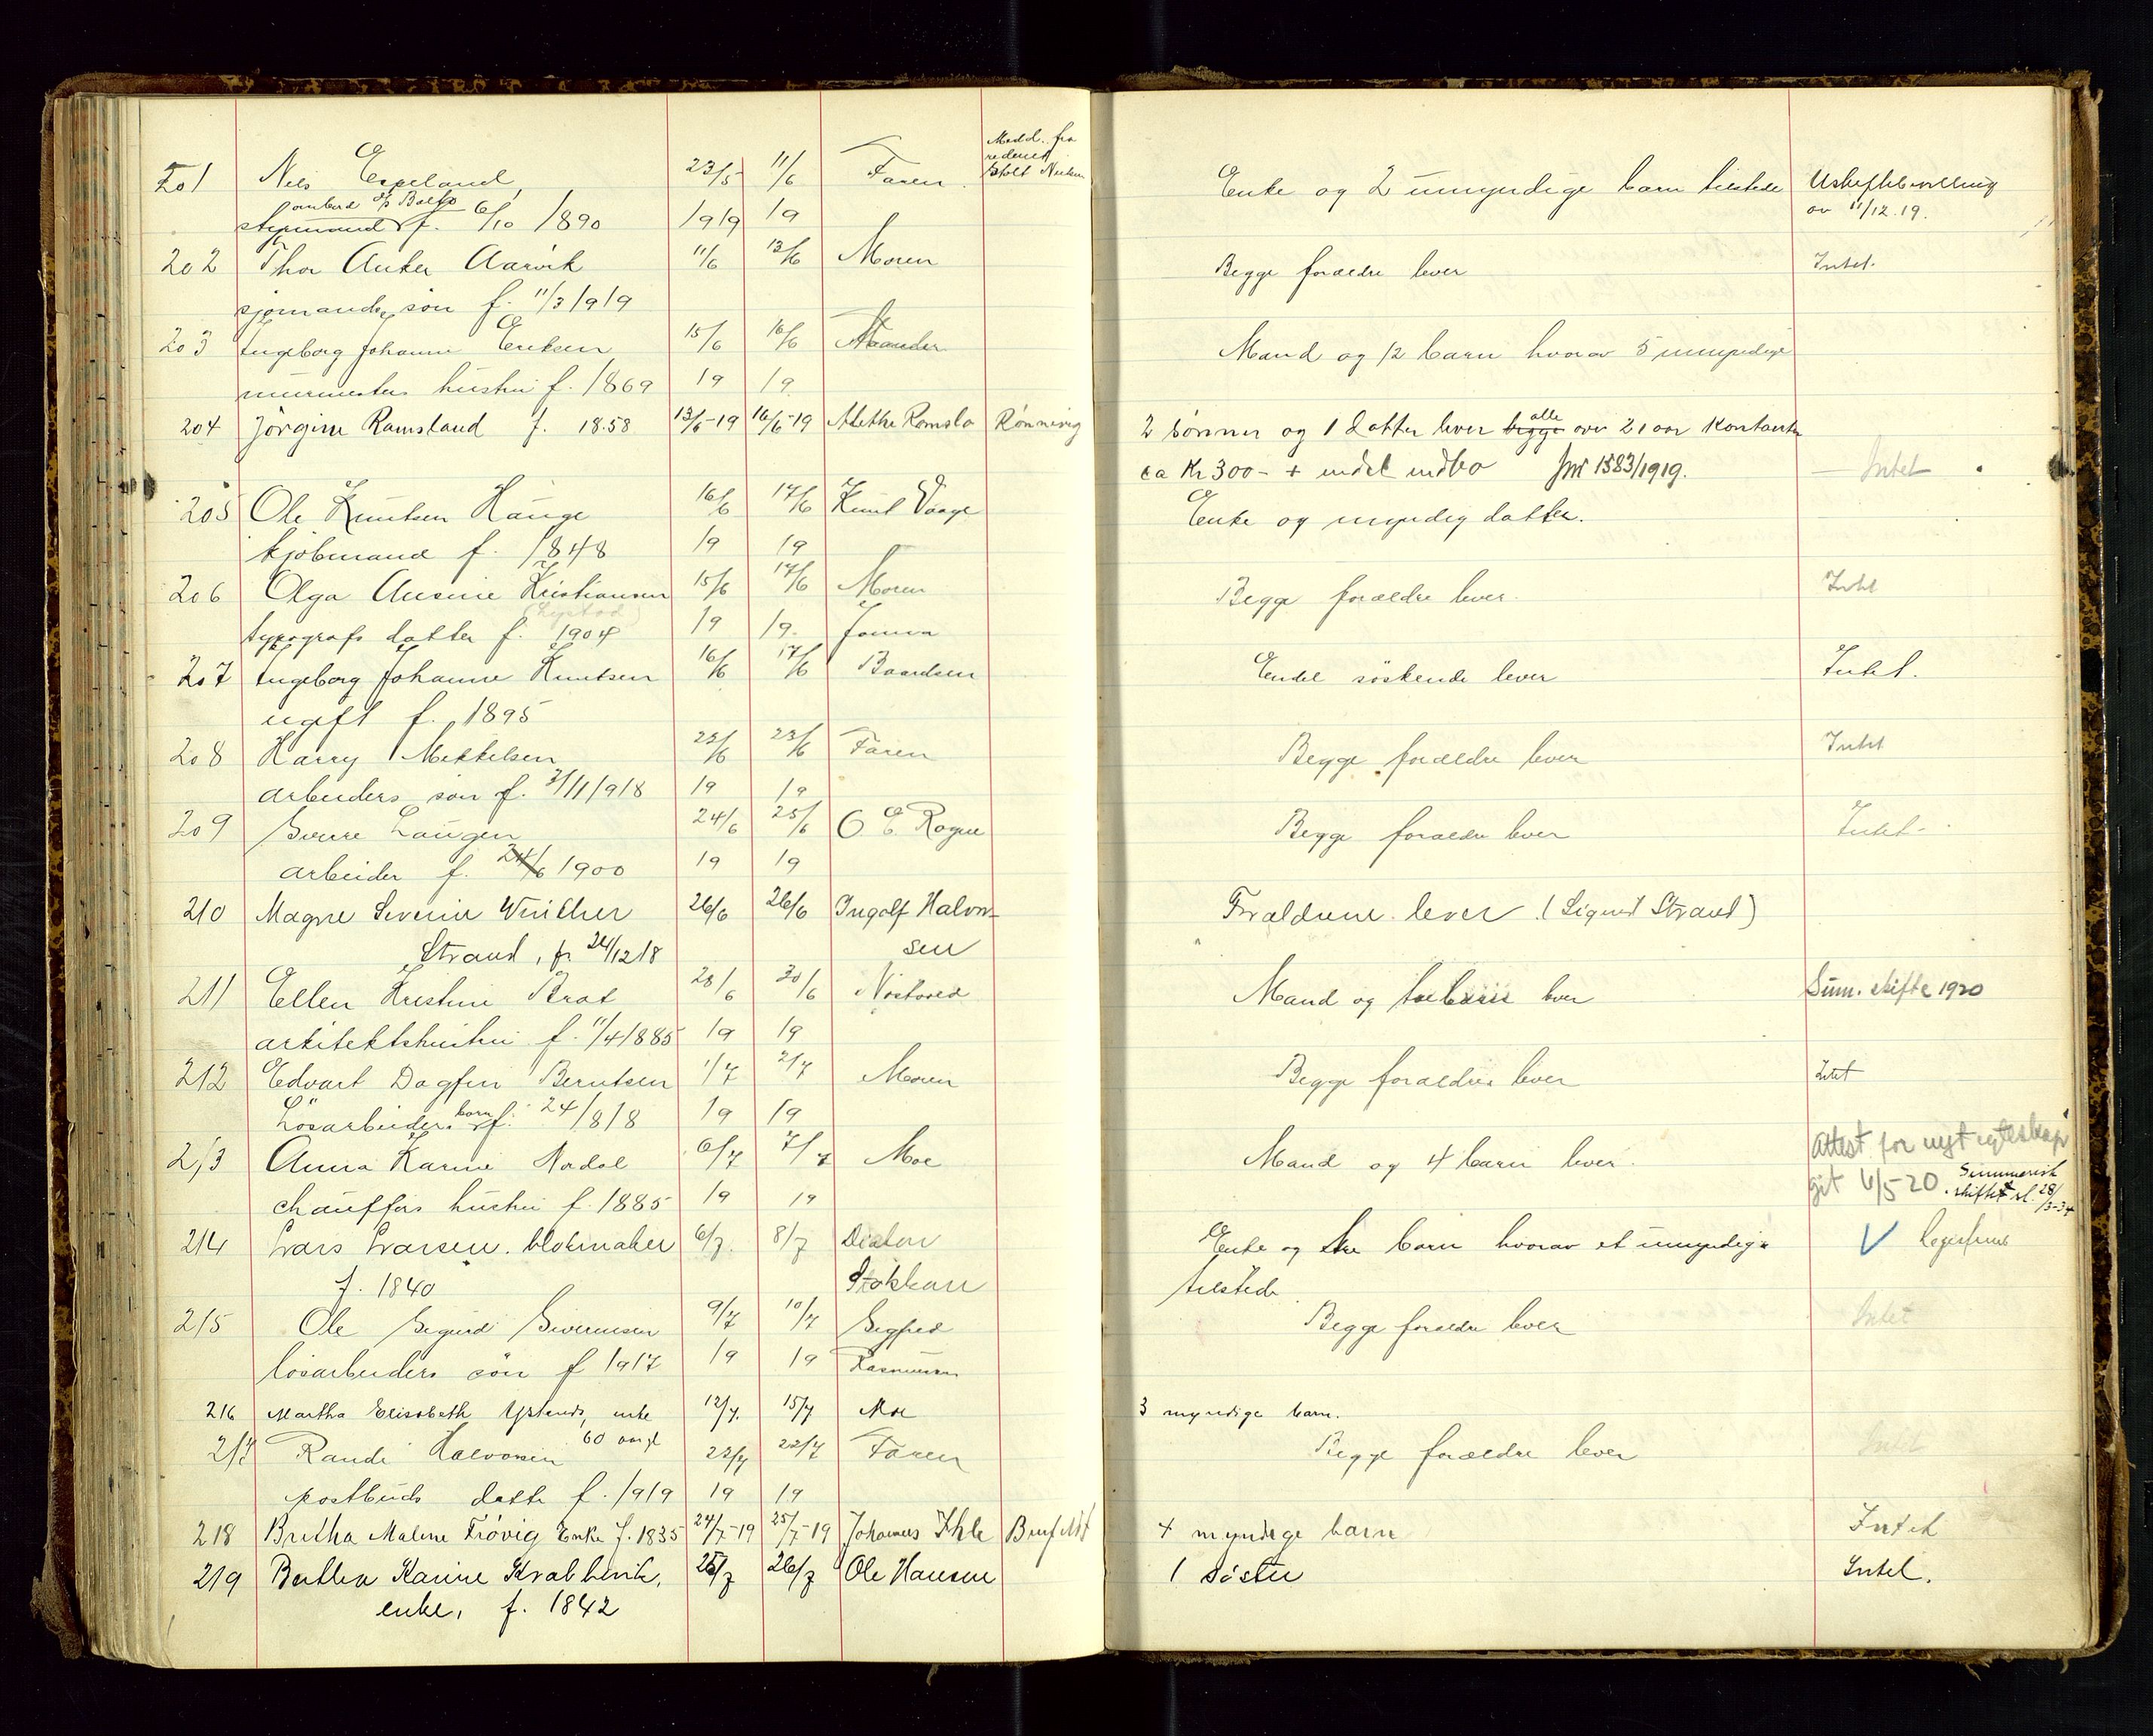 Medd. fra
201 Nils Espeland 23/5 11/6 Faren Enke og 2 umyndige barn tilstede Uskiftebevilling
av 11/12.19.
styrmand f. 6/10 1890 1919 19
202 Thor Anker Aarvik 11/6 13/6 Moren Begge forældre lever Intet.
sjømands søn f. 11/3 1919
203 Ingeborg Johanne Eriksen 15/6 16/6 Mand og 12 barn hvorav 5 umyndige
murmesters hustru f. 1869 19 19
204 Jørgine Ramsland f. 1858 13/6-19 16/6-19 Alethe Romslo Rønnevig 2 sønner og 1 datter lever begge alle over 21 aar Kontanter
ca Kr 300- + endel indbo Jnr 1583/1919. Intet
205 Ole Knutsen Hauge 16/6 17/6 Knut Vaage Enke og myndig datter.
kjøbmand f. 1848 19 19
206 Olga Ausine Kristiansen 15/6 17/6 Moren Begge forældre lever. Intet
typografs datter f. 1904 19 19.
207 Ingeborg Johanne Knutsen 16/6 17/6 Baardsen Endel søskende lever Intet.
ugift f. 1895
208 Harry Mikkelsen 23/6 23/6 Faren Begge forældre lever Intet
arbeiders søn f. 1918 19 19
209 Sverre Laugen 24/6 25/6 O E Rogne Begge forældre lever Intet.
arbeider f. 24/6 1900 19 19
210 Magne Severin Winther 26/6 26/6 Ingolf Halvor- Forældrene lever (Sigurd Strand)
Strand, f. 24/12 18 sen
211 Ellen Kristine Brat 28/6 30/6 Mand og lever Sum. skifte 1920
arkitektshustru f. 11/4 1885 19 19
212 Edvart Dagfin Berntsen 1/7 2/7 Moren Begge forældre lever Intet
Løsarbeiders barn f. 24/8 18 19 19
213 Anna Karine Nordal 6/7 7/7 Moe Mand og 4 barn lever. Attest for nyt egteskap
git 6/5 20. Summarisk skiftet sl. 28/3-34
chaufførs hustru f. 1885 19 19
214 Lars Larsen. blokmaker 6/7. 8/7 Diakon Enke og tre barn hvorav et umyndig
f. 1840 Stokkan tilstede
215 Ole Sigurd Sivertsen 9/7 10/7 Sigfred Begge forældre lever Intet
løsarbeiders søn f 1917 19 19 Rasmussen
216 Martha Elisabeth enke 12/7. 15/7 Moe 3 myndige barn.
60 aar gl
217 Randi Halvorsen 22/7 22/7 Faren Begge forældre lever Intet
postbuds datter f. 1919 19 19
218 Bertha Malene Frøvig Enke f. 1835 24/7-19 25/7-19 Johannes Ihle 4 myndige barn Intet
219 Berthea Karine 25/7 26/7 Ole Hansen 1 søster Intet.
enke, f. 1842